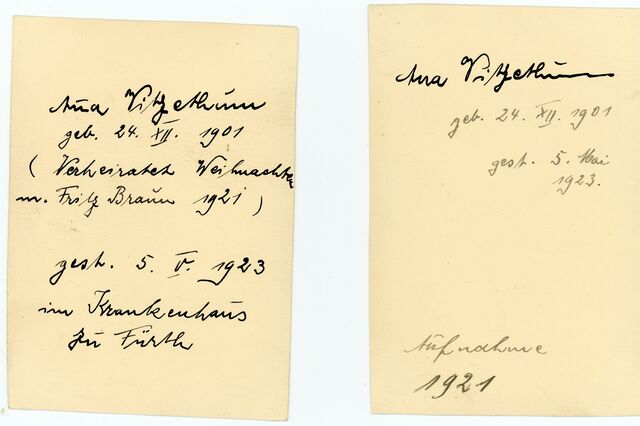 Ana Vitzethum
geb. 24. XII. 1901
( Verheiratet Weihnachten
m. Fritz Braun 1921 )
gest. 5. V. 1923
im Krankenhaus
zu Fürth
Ana Vitzethum
geb. 24. XII. 1901
gest. 5. Mai
1923.
Aufnahme
1921